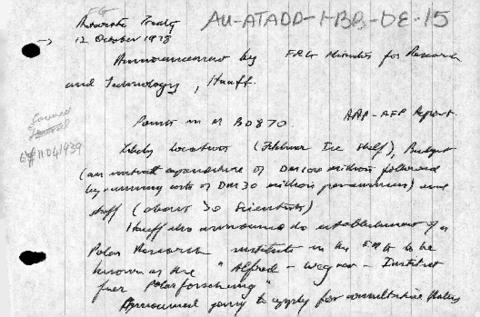 FG
AU-ATADD-1-BB-DE-15
Antarctic Treaty
→ 12 October 1978
Announcement by FRG Minister for Research
and Technology, Hauff.
Points in M BD870 AAP-AFP Report.
Likely locations (Filchner Ice Shelf), Budget
(an initial expenditure of DM100 million followed
by running costs of DM30 million per annum) and
staff (about 30 Scientists)
Hauff also announced establishment of a
Polar Research institute in the FRG to be
known as the "Alfred-Wegner-Institut
fuer Polarforschung"
Announced going to apply for consultative status